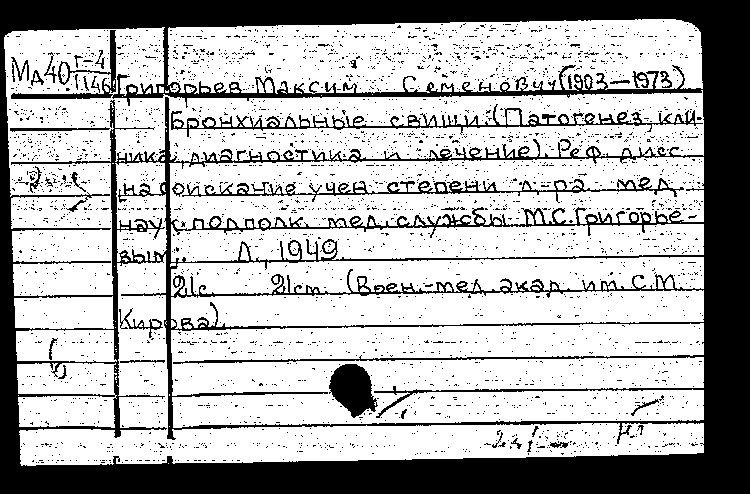 МА40 Г-4
1146
Григорьев, Максим Семенович (1903—1973)
Бронхиальные свищи. (Патогенез, кли-
ника, диагностика и лечение). Реф. дисс.
на соискание учен. степени д-ра мед.
наук подполк. мед. службы М.С. Григорье-
вым;. Л., 1949.
21с. 21см. (Воен.-мед. акад. им. С.М.
Кирова).